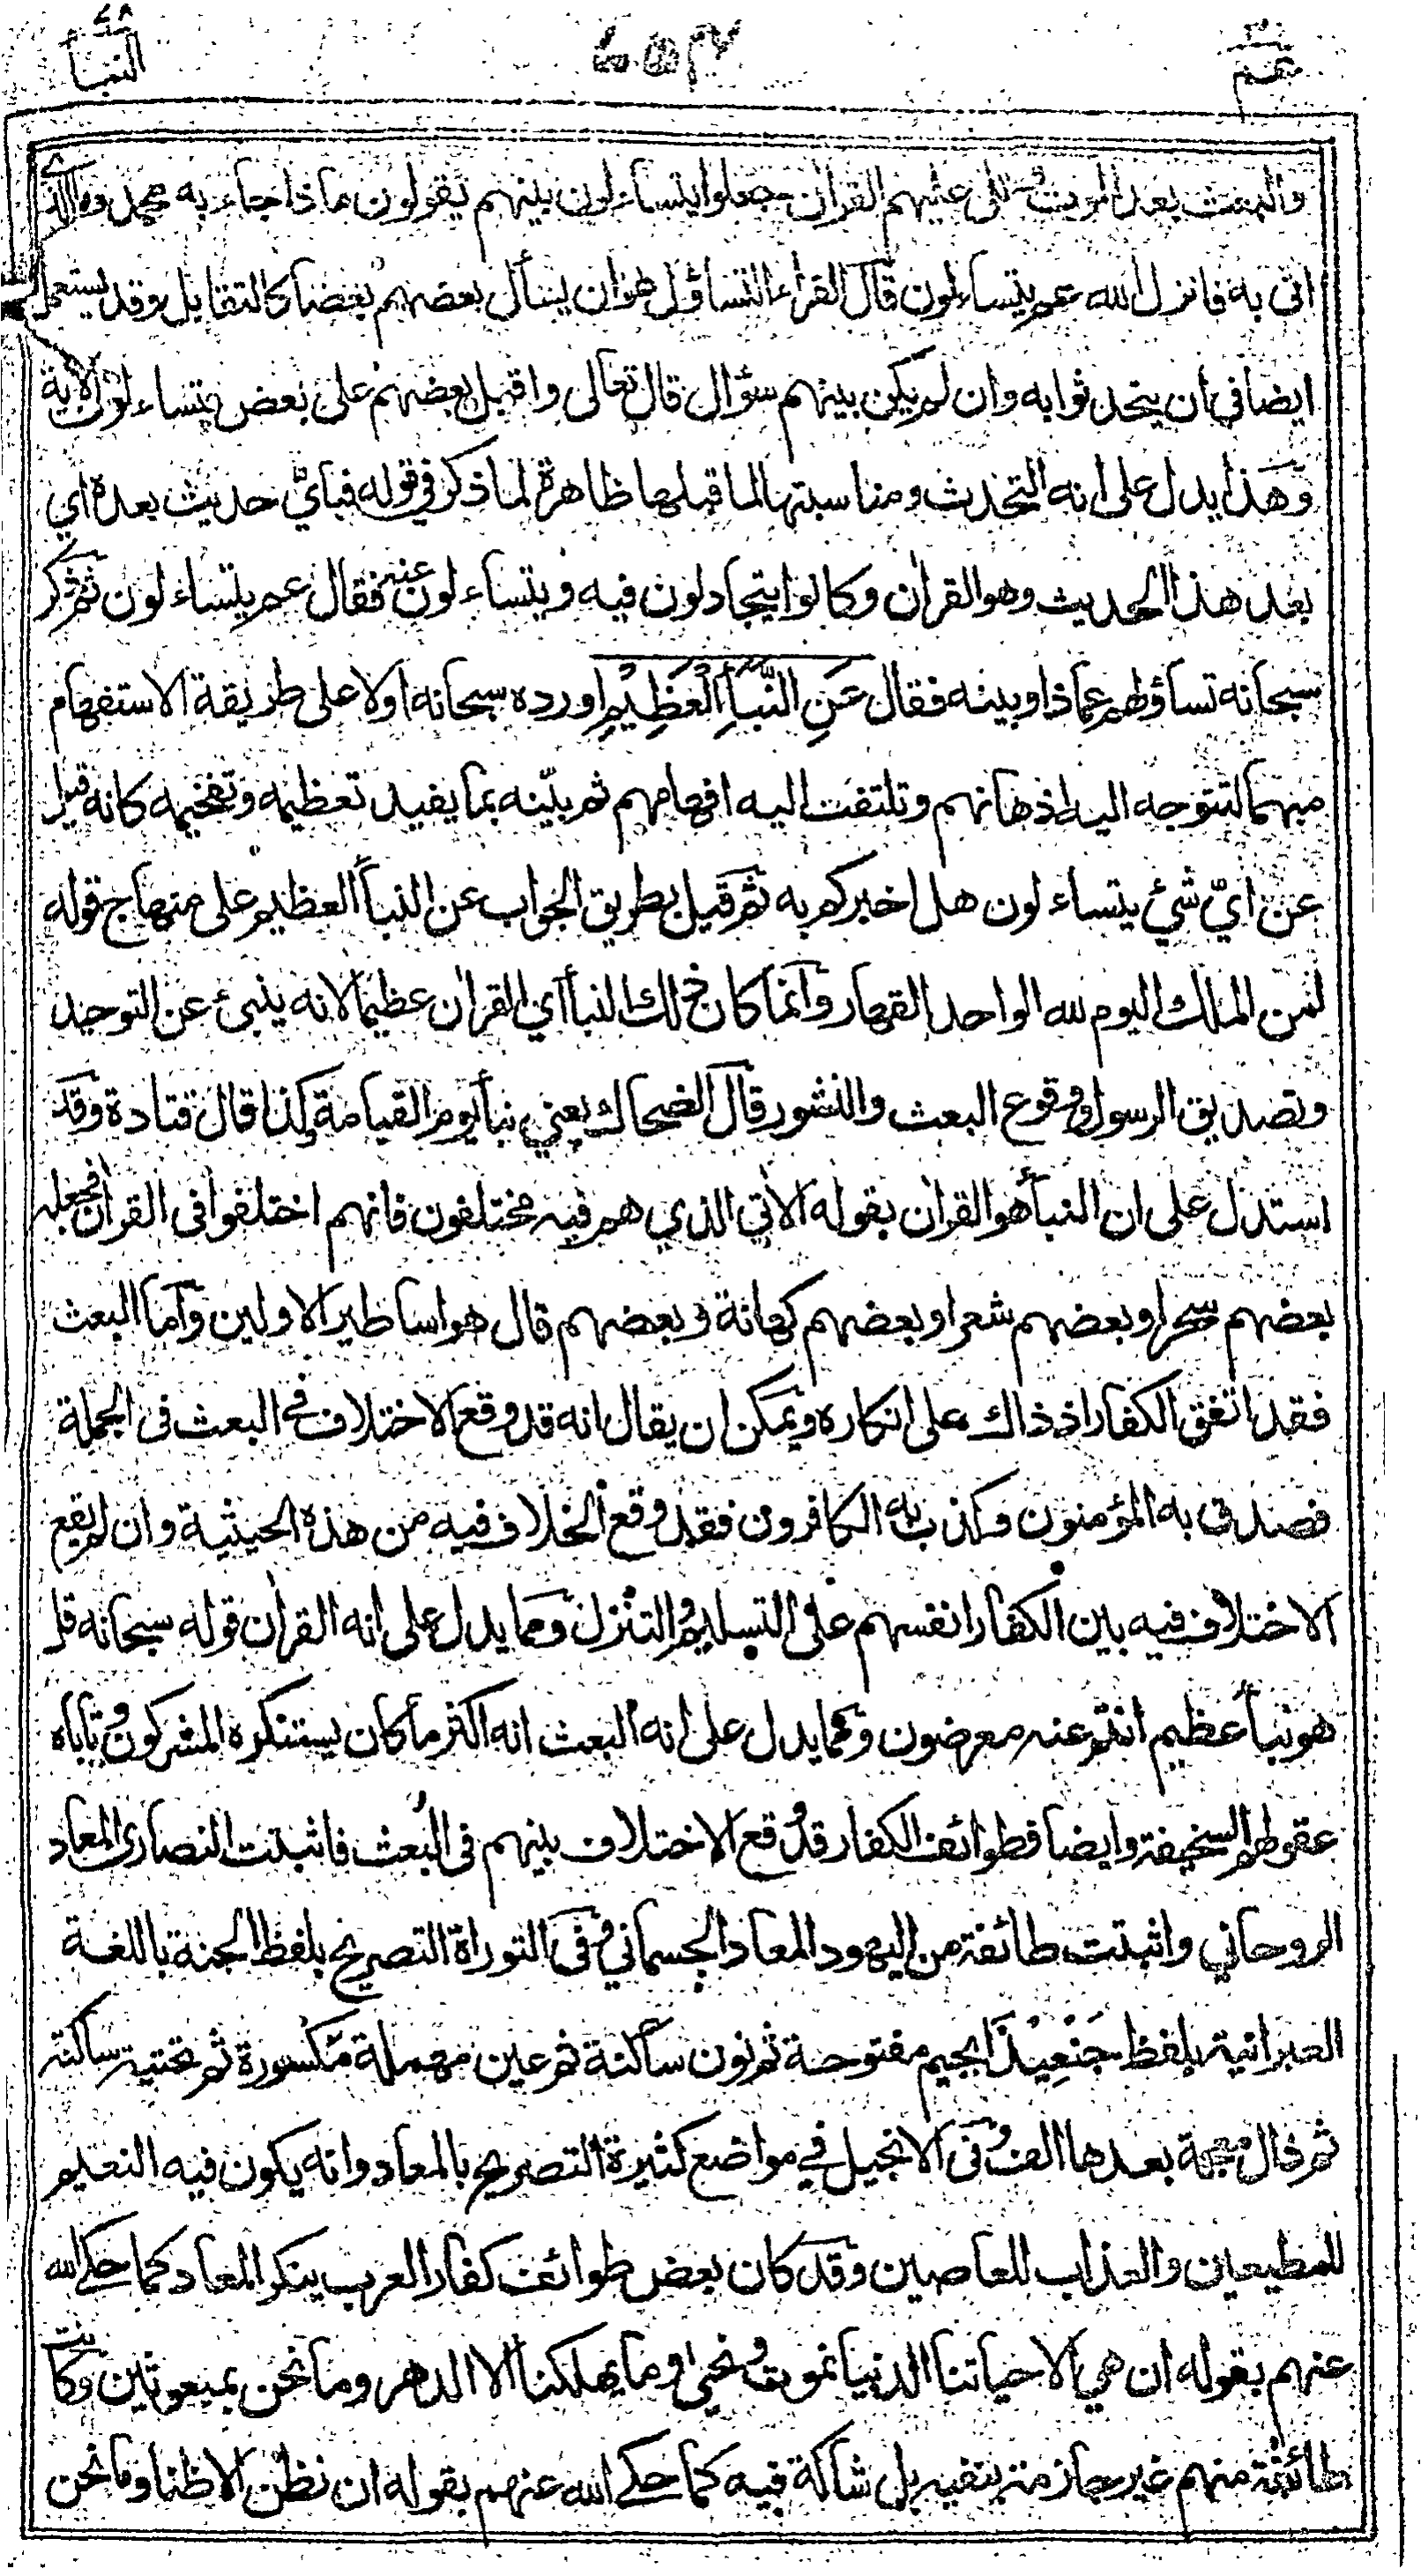 عم ٣٠
النبأ ٧٨
والبعث بعد الموت وتلى عليهم القرآن جعلوا يتساءلون بينهم يقولون ماذا جاء به محمد وما الذي
اتى به فانزل الله عم يتساءلون قال الفراء التساؤل هو ان يسأل بعضهم بعضا كالتقابل وقد يستعمل
ايضا في أن يتحدثوا به وان لم يكن بينهم سؤال قال تعالى واقبل بعضهم على بعض يتساءلون الآية
وهذا يدل على انه التحدث ومناسبتها لما قبلها ظاهرة لما ذكر في قوله فبأيّ حديث بعده اي
بعد هذا الحديث وهو القرآن وكانوا يتجادلون فيه ويتساءلون عنه فقال عم يتساءلون ثم ذكر
سبحانه تساؤلهم عماذا وبينه فقال عَنِ النَّبَأِ الْعَظِيْمِ اورده سبحانه اولا على طريقة الاستفهام
مبهما لتتوجه اليه اذهانهم وتلتفت اليه افهامهم ثم بيّنه بما يفيد تعظيمه وتفخيمه كانه قيل
عن ايّ شيء يتساءلون هل اخبركم به ثم قيل بطريق الجواب عن النبأ العظيم على منهاج قوله
لمن الملك اليوم لله الواحد القهار وانما كان ذلك النبأ اي القرآن عظيما لانه ينبئ عن التوحيد
وتصديق الرسول ووقوع البعث والنشور قال الضحاك يعني نبأ يوم القيامة وكذا قال قتادة وقد
استدل على ان النبأ هو القرآن بقوله الآتي الذي هم فيه مختلفون فانهم اختلفوا فى القرآن فجعله
بعضهم سحرا وبعضهم شعرا وبعضهم كهانة وبعضهم قال هو اساطير الاولين وأما البعث
فقد اتفق الكفار اذ ذاك على انكاره ويمكن ان يقال انه قد وقع الاختلاف في البعث فى الجملة
فصدق به المؤمنون وكذب به الكافرون فقد وقع الخلاف فيه من هذه الحيثية وان لم يقع
الاختلاف فيه بين الكفار انفسهم على التسليم والتنزل ومما يدل على انه القرآن قوله سبحانه قل
هو نبأ عظيم انتم عنه معرضون ومما يدل على انه البعث انه اكثر ما كان يستنكره المشركون وتأباه
عقولهم السخيفة وايضا فطوائف الكفار قد وقع الاختلاف بينهم فى البعث فاثبتت النصارى المعاد
الروحاني واثبتت طائفة من اليهود المعاد الجسماني وفى التوراة التصريح بلفظ الجنة باللغة
العبرانية بلفظ جَنْعِيْذَا بجيم مفتوحة ثم نون ساكنة ثم عين مهملة مكسورة ثم تحتية ساكنة
ثم ذال معجمة بعدها الف وفى الانجيل في مواضع كثيرة التصريح بالمعاد وانه يكون فيه النعيم
للمطيعين والعذاب للعاصين وقد كان بعض طوائف كفار العرب ينكر المعاد كما حكى الله
عنهم بقوله ان هي الا حياتنا الدنيا نموت ونحيى وما يهلكنا الا الدهر وما نحن بمبعوثين وكانت
طائفة منهم غير جازمة بنفيه بل شاكة فيه كما حكى الله عنهم بقوله ان نظن الا ظنا وما نحن